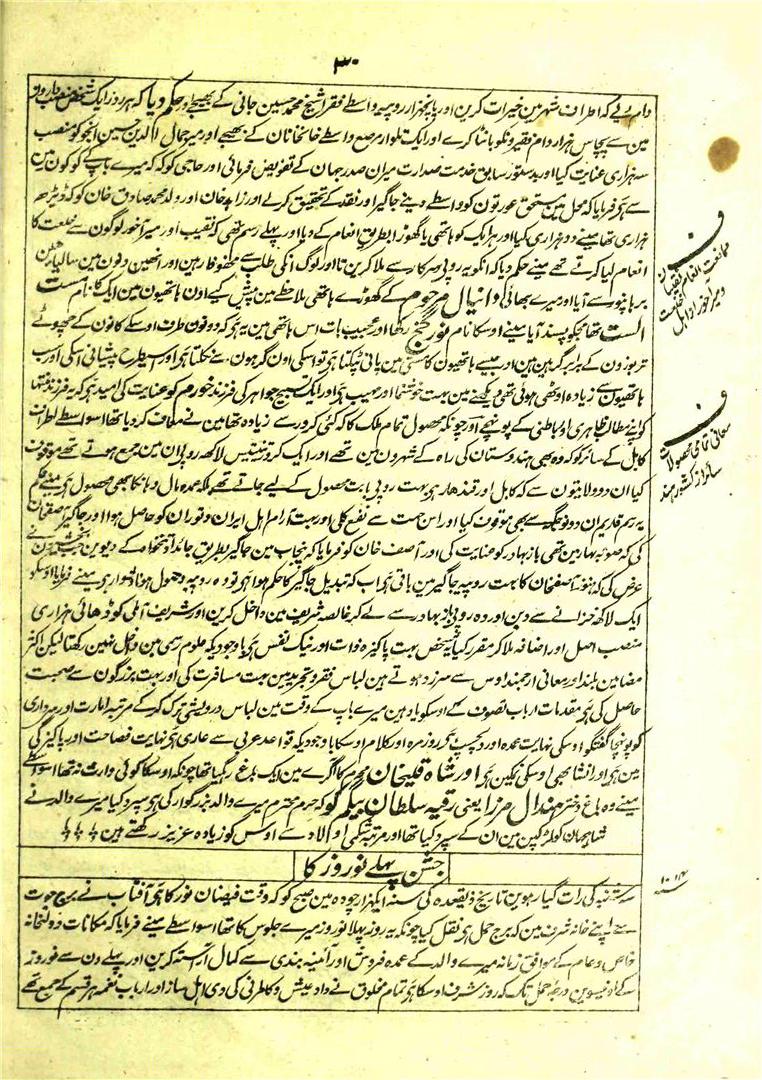 ۳۰
دام دیے کہ اطراف شہر مین خیرات کرین اور پانچہزار روپیہ واسطے فقرا شیخ محمد حسین جانی کے بھیجے اور حکم دیا کہ ہر روز ایک شخص منصب دارون
مین سے پچاس ہزار دام فقیرونکو بانٹا کرے اور ایک تلوار مرصع واسطے خانخانان کے بھیجے اور میر جمال الدین حسین انجو کو منصب
سہ ہزاری عنایت کیا اور بدستور سابق خدمت صدارت میران صدر جہان کے تفویض فرمائی اور حاجی کوکہ کہ میرے باپ کے کوکون مین
سے ہی فرمایا کہ محل مین مستحق عورتون کو واسطے دینے جاگیر اور نقد کے تحقیق کرے اور زاہد خان اور ولد محمد صادق خان کو کہ ڈیڑھ
ہزاری تھا مینے دو ہزاری کیا اور ہر ایک کو ہاتھی یا گھوڑا بطریق انعام کے دیا اور پہلے رسم تھی کہ نقیب اور میر آخور لوگون سے خلعت کا
انعام لیا کرتے تھے مینے حکم دیا کہ انکو یہ روپی سرکار سے ملا کرین تا اور لوگ انکی طلب سے محفوظ رہین اور انھین دنون مین سالباہن
برہانپور سے آیا اور میرے بھائی دانیال مرحوم کے گھوڑے ہاتھی ملاحظے مین پیش کیے اون ہاتھیون مین ایک کا نام مست
الست تھا مجکو پسند آیا مینے اوسکا نام نور گنج رکھا اور عجیب بات اس ہاتھی مین یہ ہی کہ دونون طرف اوسکے کانون کے چھوٹے
تربوزون کے برابر گرہین ہین اور جیسے ہاتھیون کا مستی مین پانی ٹپکتا ہی تو اسکی اون گرہون سے نکلتا ہی اور اسیطرح پیشانی اسکی اور سب
ہاتھیون سے زیادہ اوٹھی ہوئی تھی دیکھنے مین بہت خوشنما اور مہیب ہی اور ایک تسبیح جواہر کی فرزند خورم کو عنایت کی امید ہی کہ یہ فرزند منتہا
کو اپنے مطالب ظاہری اور باطنی کے پونہچے اور چونکہ محصول تمام ملک کا کہ کئی کرور سے زیادہ تھا مین نے معاف کر دیا تھا اسواسطے اطراف
کابل کے سائر کو کہ وہ بھی ہندوستان کی راہ کے شہرون مین تھے اور ایک کرور تئیس لاکھ روپی ان مین جمع ہوتے تھے موقوف
کیا ان دو ولایتون سے کہ کابل اور قندھار ہی بہت روپی بابت محصول کے لیے جاتے تھے بلکہ عمدہ مال وہانکا یہی محصول ہی مینے حکم
یہ رسم قدیم ان دونو جگہ سے بھی موقوف کیا اور اس جہت سے نفع کلی اور بہت آرام اہل ایران و توران کو حاصل ہوا اور جاگیر آصفخان
کی کہ صوبہ بہار مین تھی باز بہادر کو عنایت کی اور آصف خان کو فرمایا کہ پنجاب مین جاگیر بطریق جائداد تنخواہ کے دیوین جب بخشیون نے
عرض کی کہ ہنوز آصفخان کا بہت روپیہ جاگیر مین باقی ہی اب کہ تبدیل جاگیر کا حکم ہوا ہی تو وہ روپیہ وصول ہونا دشوار ہی مینے فرمایا اوسکو
ایک لاکھ خزانے سے دین اور وہ روپی باز بہادر سے لے کر خالصہ شریف مین داخل کرین اور شریف آملی کو ڈھائی ہزاری
منصب اصل اور اضافہ ملا کر مقرر کیا یہ شخص بہت پاکیزہ ذات اور نیک نفس ہی باوجودیکہ علوم رسمی مین دخل نہین رکھتا لیکن اکثر
مضامین بلند اور معانی ارجمند اوس سے سرزد ہوتے ہین لباس فقر و تجرید مین بہت مسافرت کی اور بہت بزرگون سے صحبت
حاصل کی ہی مقدمات ارباب تصوف کے اوسکو یاد ہین میرے باپ کے وقت مین لباس درویشی ترک کر کے مرتبہ امارت اور سرداری
کو پونہچا گفتگو اوسکی نہایت عمدہ اور دلچسپ ہی روزمرہ اور کلام اوسکا باوجودیکہ قواعد عربی سے عاری ہی نہایت فصاحت اور پاکیزگی
مین ہی اور انشا بھی اوسکی نمکین ہی اور شاہ قلیخان محرم کا آگرے مین ایک باغ رہگیا تھا چونکہ اوسکا کوئی وارث نہ تھا اسواسطے
مینے وہ باغ دختر ہندال مرزا یعنی رقیہ سلطان بیگم کو کہ حرم محترم میرے والد بزرگوار کی ہی سپرد کیا میرے والد نے
شاہجہان کو لڑکپن مین ان کے سپرد کیا تھا اور مرتبہ شکمی اولاد سے اوس کو زیادہ عزیز رکھتے ہین
جشن پہلے نوروز کا
سہ شنبہ کی رات گیارہوین تاریخ ذیقعدہ کی سنہ ایکہزار چودہ مین صبح کو کہ وقت فیضان نور کا ہی آفتاب نے برج حوت
سے اپنے خانہ شرف مین کہ برج حمل ہی نقل کیا چونکہ یہ روز پہلا نوروز میرے جلوس کا تھا اسواسطے مینے فرمایا کہ مکانات دولتخانہ
خاص و عام کے موافق زمانہ میرے والد کے عمدہ فروش اور آئینہ بندی سے کمال آراستہ کرین اور پہلے دن سے نوروز
کے اونیسوین درجہ حمل تک کہ روز شرف اوسکا ہی تمام مخلوق نے داد عیش و کامرانی کی دی اہل ساز اور ارباب نغمہ ہر قسم کے جمع تھے
ف
ممانعت انعام نقیبانہ
و میر آخور از اہل
خلعت
ف
معافی تمامی محصولات
سائر از کشور ہند
۱۰۱۴
سنہ